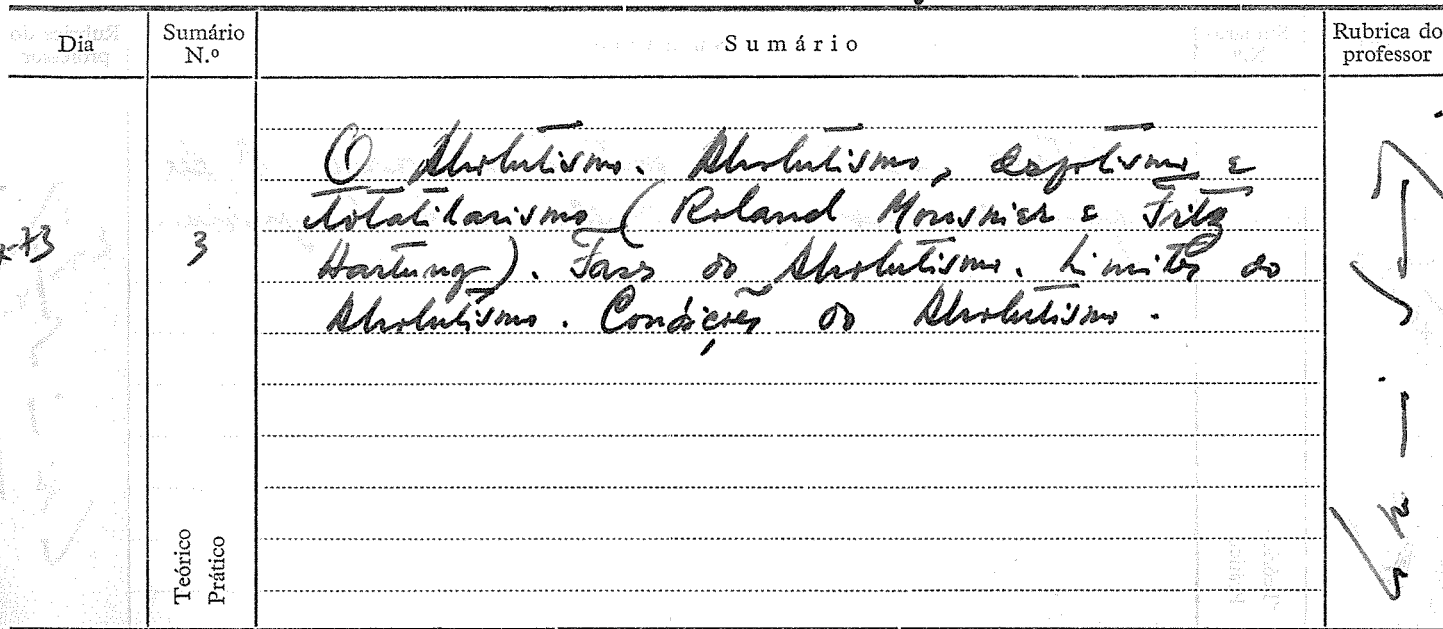 Dia
Sumário N.º
Sumário
Rubrica do professor
-73
3
O Absolutismo. Absolutismo, despotismo e
totalitarismo (Roland Mousnier e Fritz
Hartung). Fases do Absolutismo. Limites do
Absolutismo. Condições do Absolutismo.
Teórico
Prático